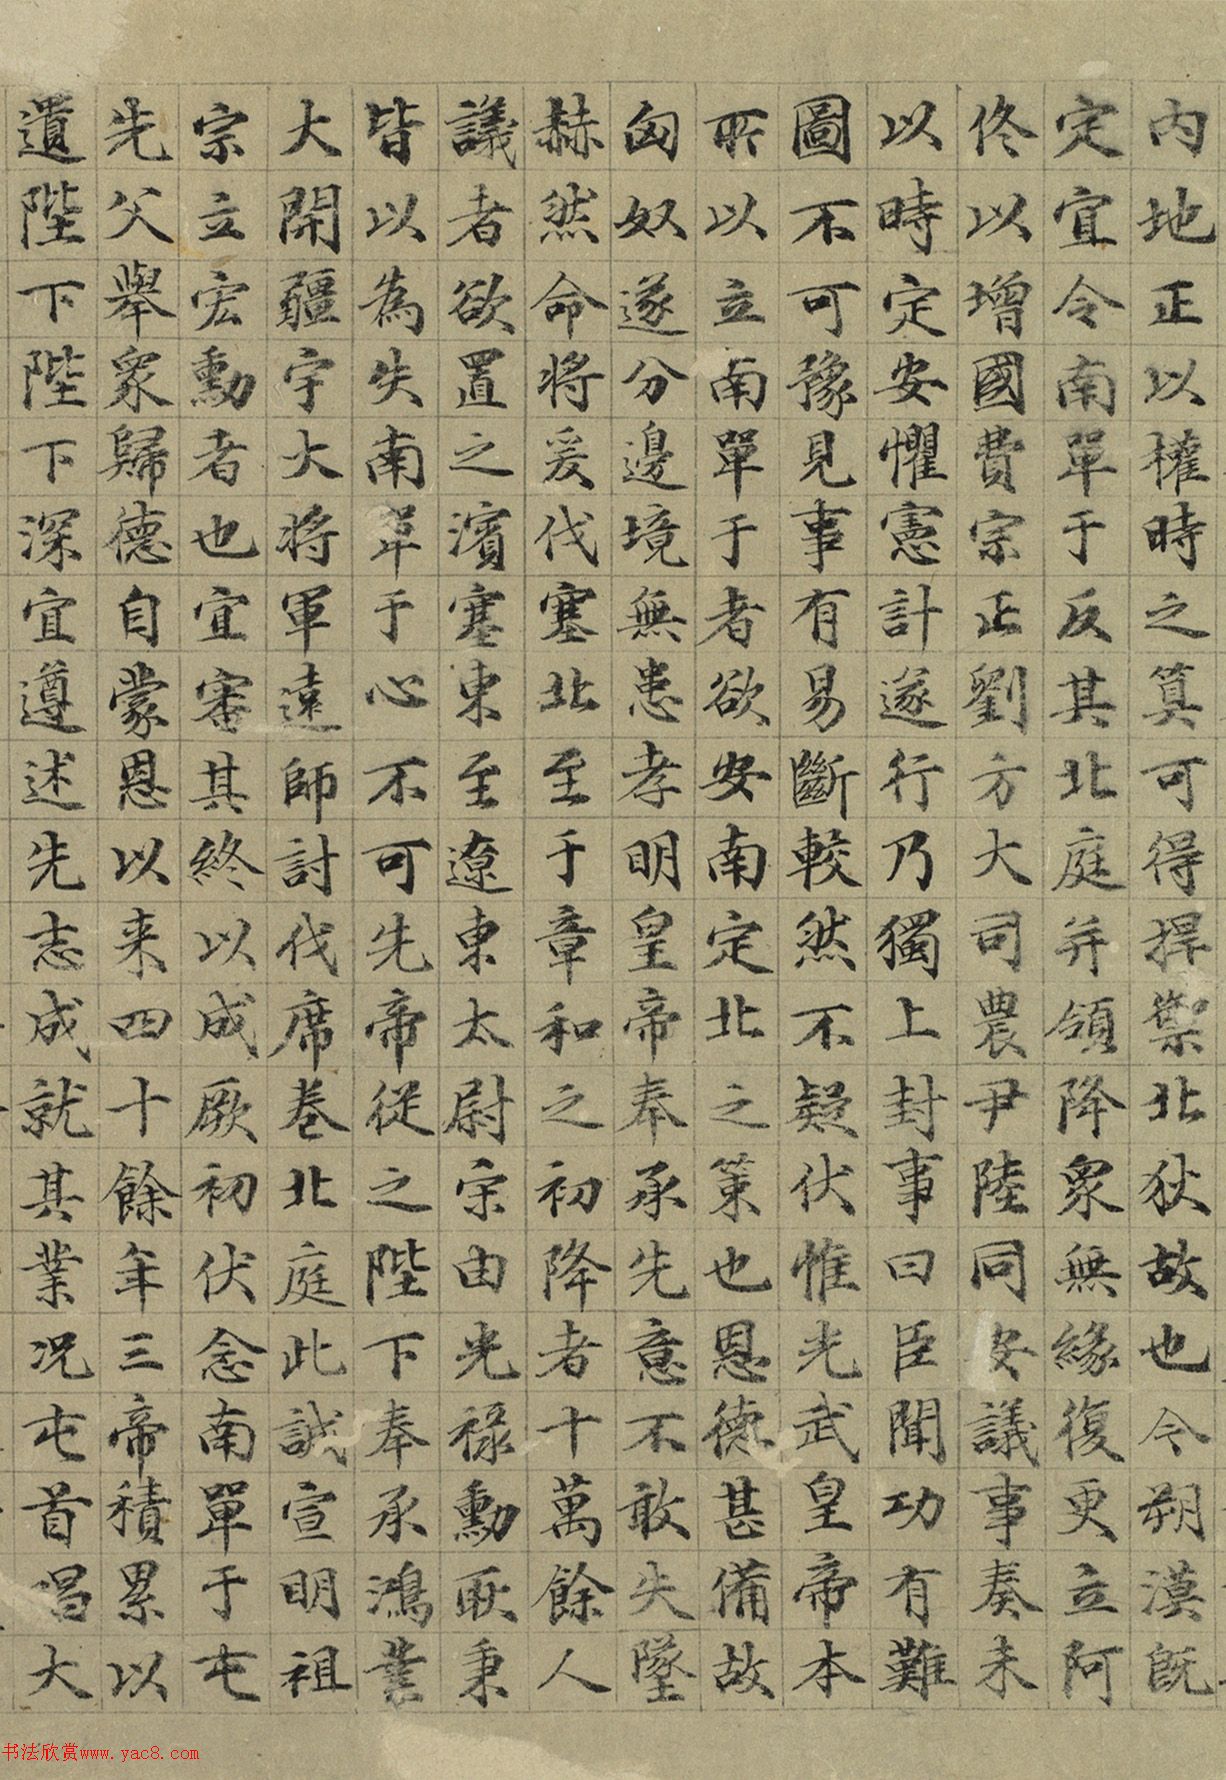 內地正以權時之算可得捍禦北狄故也今朔漠既
定宜令南單于反其北庭并領降眾無緣復更立阿
佟以增國費宗正劉方大司農尹陸同安議事奏未
以時定安懼憲計遂行乃獨上封事曰臣聞功有難
圖不可豫見事有易斷較然不疑伏惟光武皇帝本
所以立南單于者欲安南定北之策也恩德甚備故
匈奴遂分邊境無患孝明皇帝奉承先意不敢失墜
赫然命將爰伐塞北至于章和之初降者十萬餘人
議者欲置之濱塞東至遼東太尉宋由光祿勳耿秉
皆以為失南單于心不可先帝從之陛下奉承鴻業
大開疆宇大將軍遠師討伐席卷北庭此誠宣明祖
宗立宏勳者也宜審其終以成厥初伏念南單于屯
先父舉眾歸德自蒙恩以来四十餘年三帝積累以
遺陛下陛下深宜遵述先志成就其業況屯首唱大
书法欣赏www.yac8.com